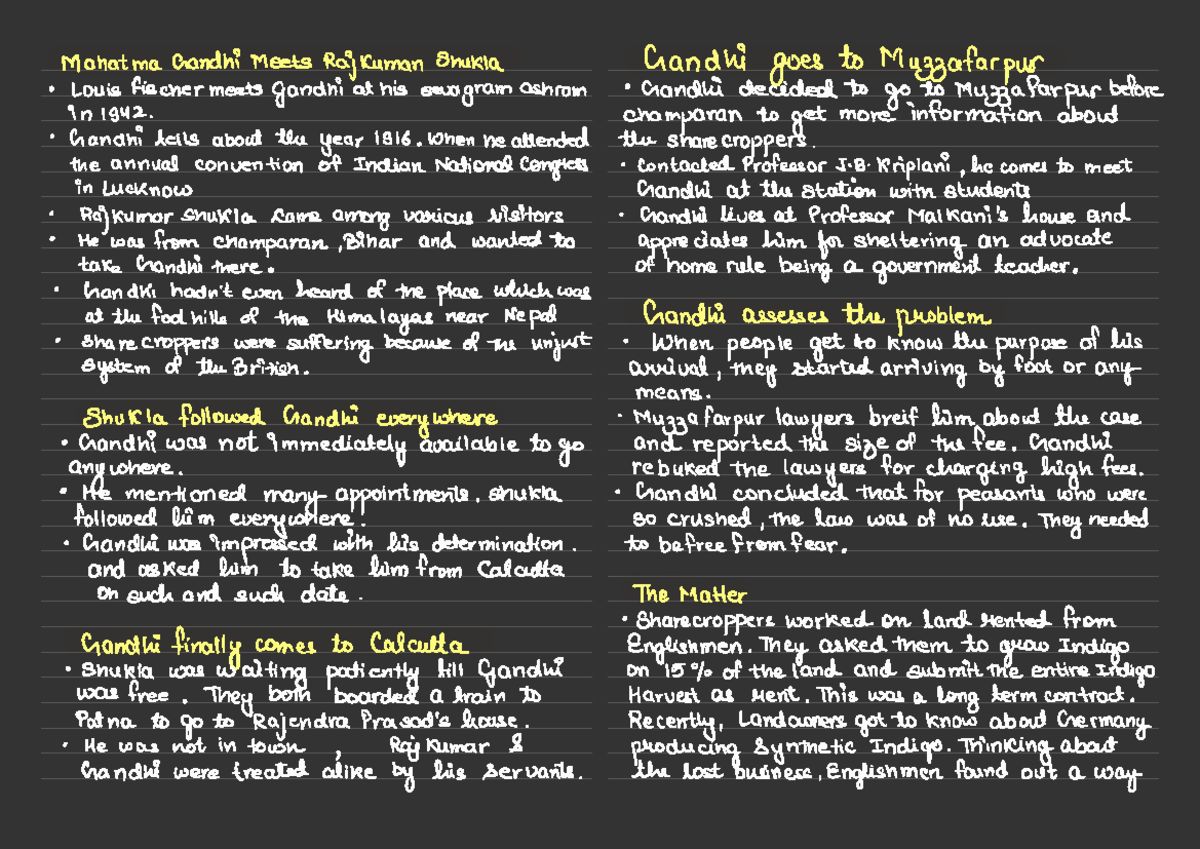 Mahatma Gandhi Meets Rajkumar Shukla
• Louis fischer meets Gandhi at his sevagram ashram
in 1942.
• Gandhi tells about the year 1916. When he attended
the annual convention of Indian National Congress
in Lucknow
• Rajkumar Shukla came among various visitors
• He was from champaran, Bihar and wanted to
take Gandhi there.
• Gandhi hadn't even heard of the place which was
at the foot hills of the Himalayas near Nepal
• Share croppers were suffering because of the unjust
system of the British.
Shukla followed Gandhi everywhere
• Gandhi was not immediately available to go
anywhere.
• He mentioned many appointments. Shukla
followed him everywhere.
• Gandhi was impressed with his determination.
and asked him to take him from Calcutta
on such and such date.
Gandhi finally comes to Calcutta
• Shukla was waiting patiently till Gandhi
was free. They both boarded a train to
Patna to go to Rajendra Prasad's house.
• He was not in town, Raj Kumar &
Gandhi were treated alike by his servants.
Gandhi goes to Muzzafarpur
• Gandhi decided to go to Muzzafarpur before
champaran to get more information about
the sharecroppers.
• Contacted Professor J.B. Kriplani, he comes to meet
Gandhi at the station with students
• Gandhi lives at Professor Malkani's house and
appreciates him for sheltering an advocate
of home rule being a government teacher.
Gandhi assesses the problem
• When people get to know the purpose of his
arrival, they started arriving by foot or any
means.
• Muzzafarpur lawyers breif him about the case
and reported the size of the fee. Gandhi
rebuked the lawyers for charging high fees.
• Gandhi concluded that for peasants who were
so crushed, the law was of no use. They needed
to be free from fear.
The Matter
• Sharecroppers worked on land rented from
Englishmen. They asked them to grow Indigo
on 15% of the land and submit the entire Indigo
Harvest as rent. This was a long term contract.
Recently, Landowners got to know about Germany
producing Synthetic Indigo. Thinking about
the lost business, Englishmen found out a way